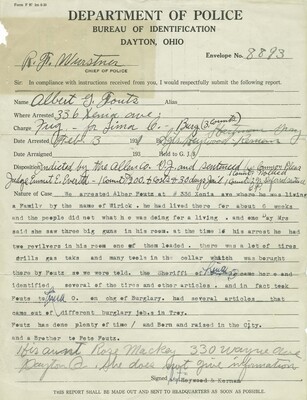 DEPARTMENT OF POLICE
BUREAU OF IDENTIFICATION
DAYTON, OHIO
Envelope No. 8893
R. F. Wurstner
CHIEF OF POLICE
Sir: In compliance with instructions received from you, I would respectfully submit the following report.
Name Albert J. Fouts Alias
Where Arrested 336 Xenia ave.
Charge Fug - for Lima O. - Burg (2 counts)
Date Arrested 3 193
Date Arraigned 193 Held to G. J. $
Disposition Indicted by the Allen Co. GJ and sentenced by Common Pleas
Judge Emmit E. Everett
Nature of Case Arrested Albur Foutz at # 336 Xenia
a Family by the name of Wirick. he had lived there for about 6 weeks
and the people did not what h e was doing for a living. and one May Mrs
said she saw three big guns in his room, at the time of his arrest he had
two revilvers in his room one of them loaded. there was a lot of tires
drills gas take and many tools in the cellar which was borught
there by Foutz so we were told. the Sheriff of came her e and
identified, several of the tires and other articles. and in fact took
Foutz to O. on chg of Burglary. had several articles that
came out of different burglary jobs in Troy.
Foutz has done plenty of time/ and Born and raised in the City.
and a Brother to Pete Foutz.
His aunt Rose Mackey 330 Wayne Ave
Dayton O. She does give information
Signed Heywood & Kernan
THIS REPORT SHALL BE MADE OUT AND SENT TO HEADQUARTERS AS SOON AS POSSIBLE.